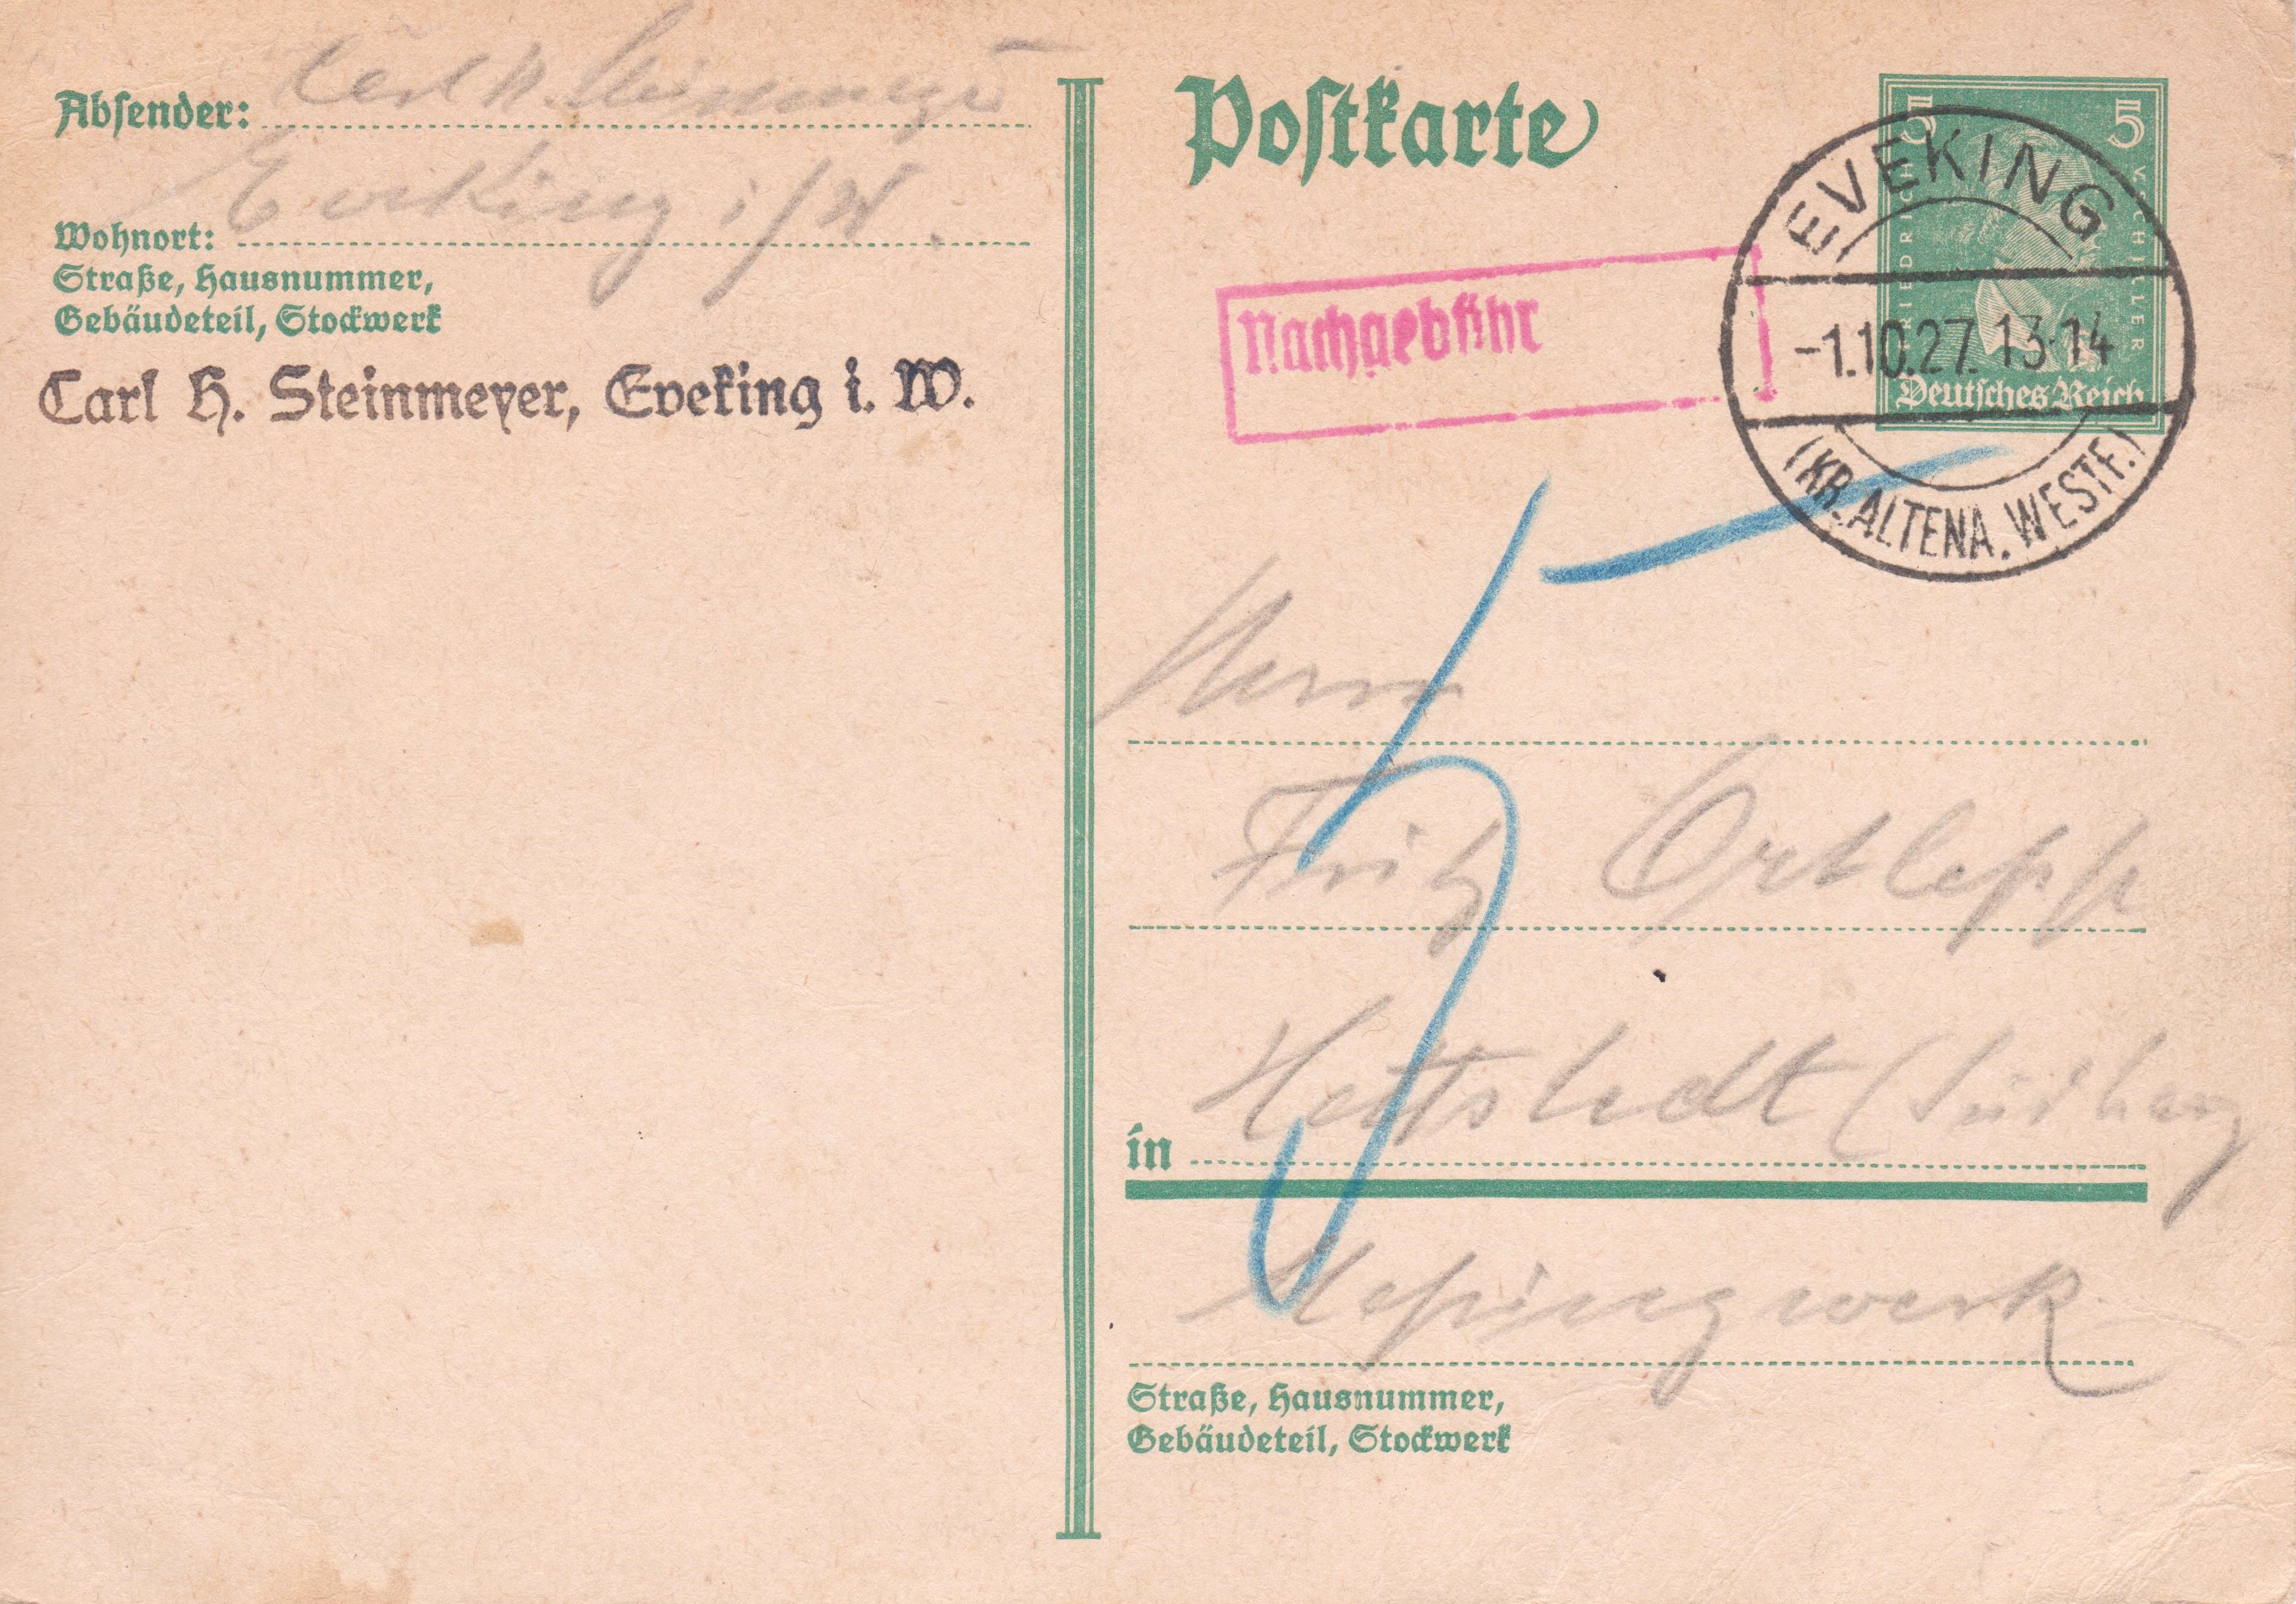 Absender: Carl H Steinmeyer
Eveking i/W.
Wohnort:
Straße, Hausnummer,
Gebäudeteil, Stockwerk
Carl H. Steinmeyer, Eveking i. W.
Postkarte
5 5
FRIEDRICH V. SCHILLER
Deutsches Reich
EVEKING
-1.10.27. 13-14
(KR. ALTENA. WESTF.)
Nachgebühr
5
Herrn
Fritz Ortlepp
in Hettstedt (Südharz
Meßingwerk.
Straße, Hausnummer,
Gebäudeteil, Stockwerk